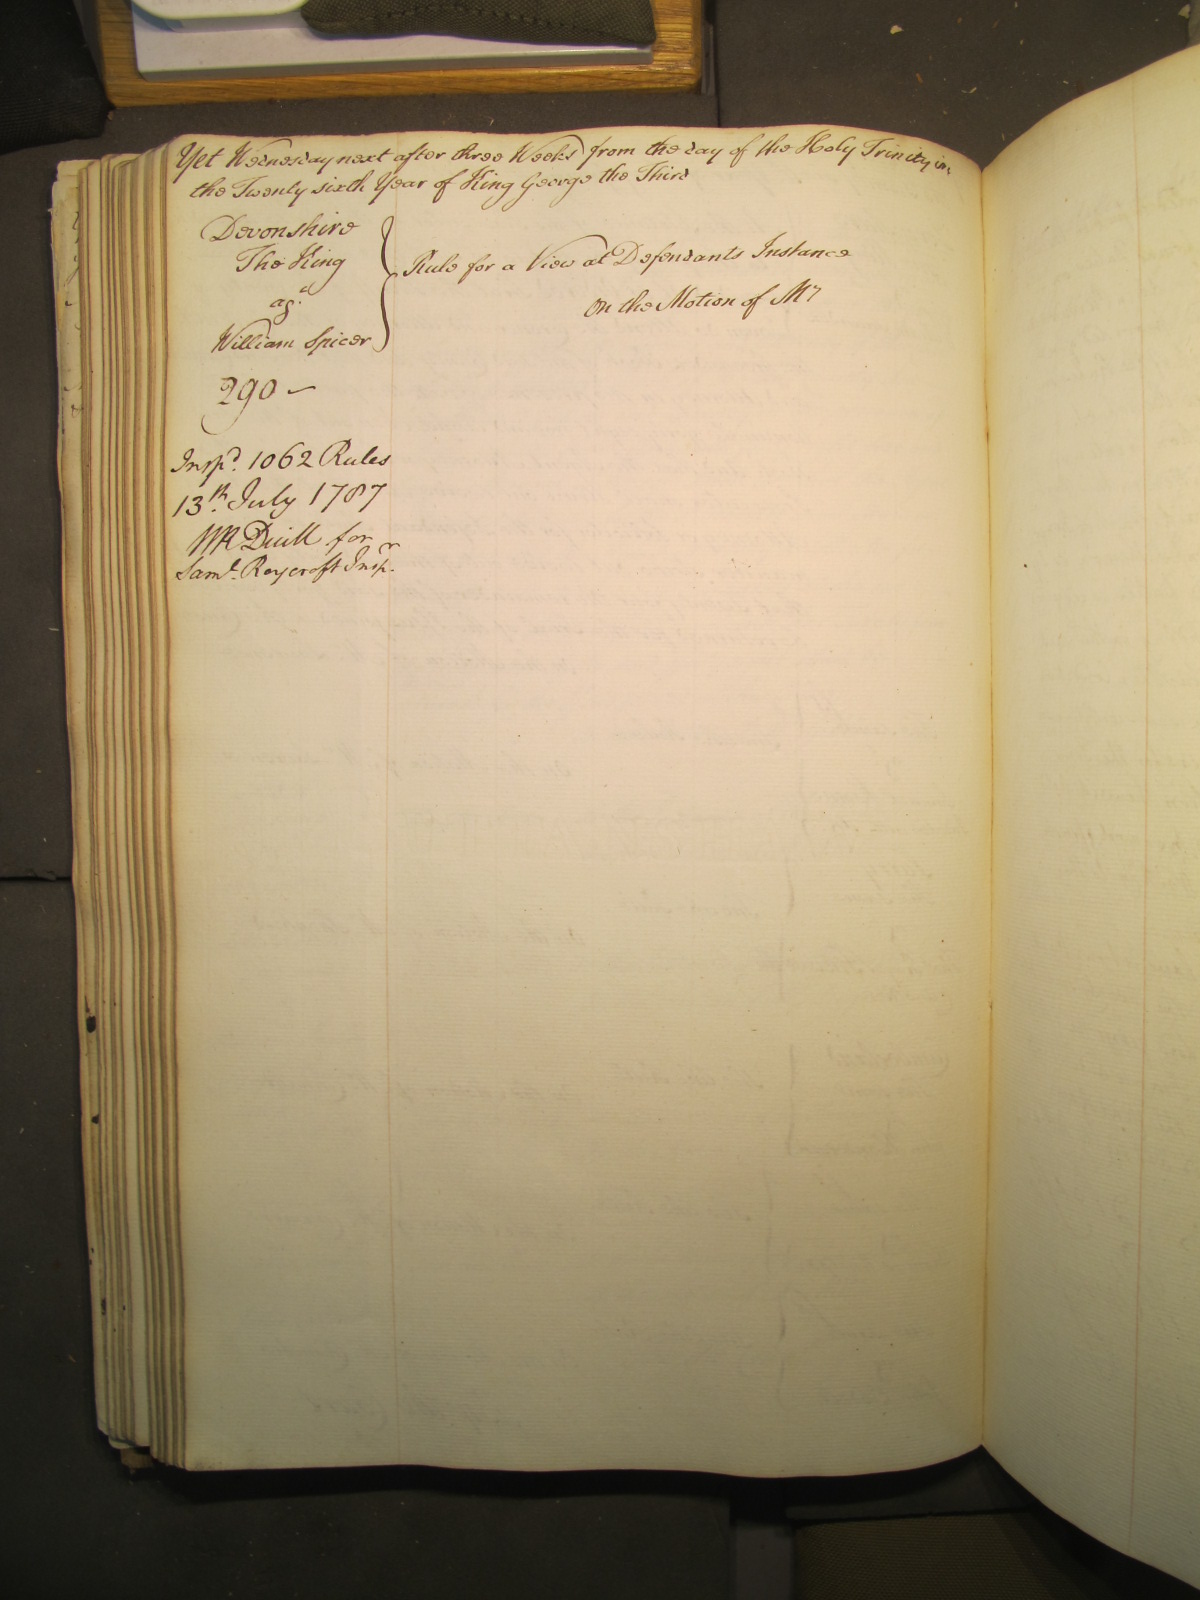 Yet Wednesday next after three Weeks from the day of the Holy Trinity in
the Twenty sixth Year of King George the Third
Devonshire
The King
agt
William Spicer
Rule for a View at Defendants Instance
On the Motion of Mr
290 –
Inspd. 1062 Rules
13th. July 1787
for
Saml. Roycroft Inspr.